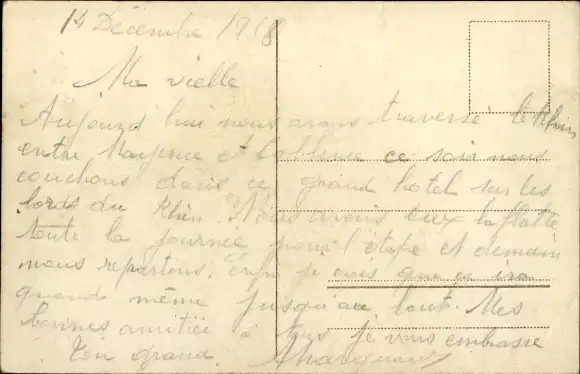 14 Décembre 1918
Ma vielle
Aujourd'hui nous avons traversé le Rhin
entre Mayence et Coblence ce soir nous
couchons dans ce grand hotel sur les
bords du Rhin Nous avons eux la flotte
toute la journée pour l'étape et demain
nous repartons. Enfin je vois que ça ira
quand même jusqu'au bout. Mes
bonnes amitiée à tous je vous embrasse
Ton grand